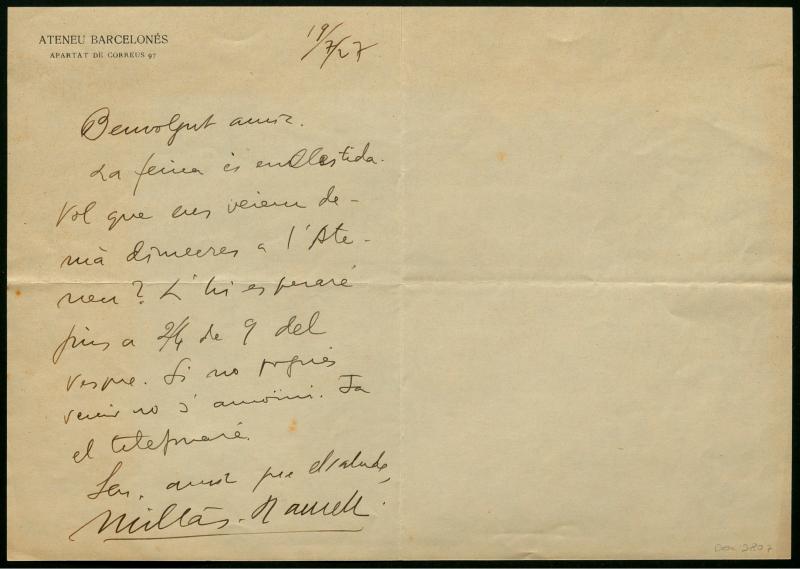 ATENEU BARCELONÉS
APARTAT DE CORREUS 97
19/7/27
Benvolgut amic.
La feina és enllestida.
Vol que ens veiem de-
mà dimecres a l'Ate-
neu? L'hi esperaré
fins a 2/4 de 9 del
vespre. Si no pogués
venir no s'amoïni. Ja
el telefonaré.
Seu, amic que el saluda,
Millás-Raurell.
Doc 2807